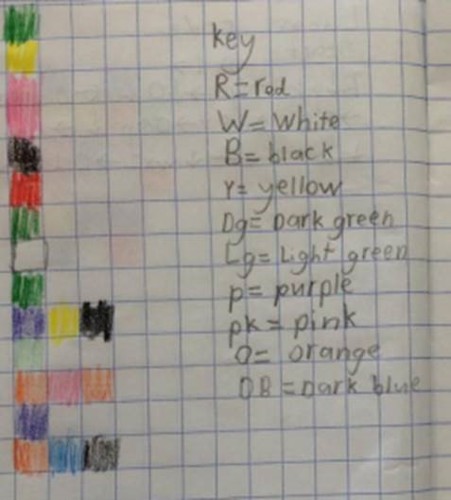 key
R=rod
W=white
B=black
Y=yellow
Dg=Dark green
Lg=Light green
p=purple
pk=pink
O=orange
DB=Dark blue